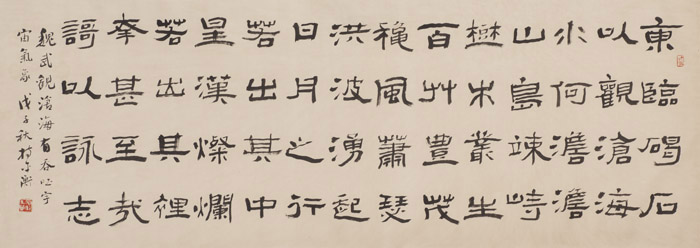 東臨碣石
以觀滄海
水何澹澹
山島竦峙
樹木叢生
百艸豊茂
穐風蕭瑟
洪波湧起
日月之行
若出其中
星漢燦爛
若出其裡
幸甚至哉
謌以詠志
魏武觀滄海有吞吐宇
宙氣象戊子秋